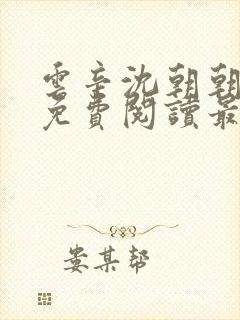 雲辛沈朝朝
免費閱讀最
娄某帮